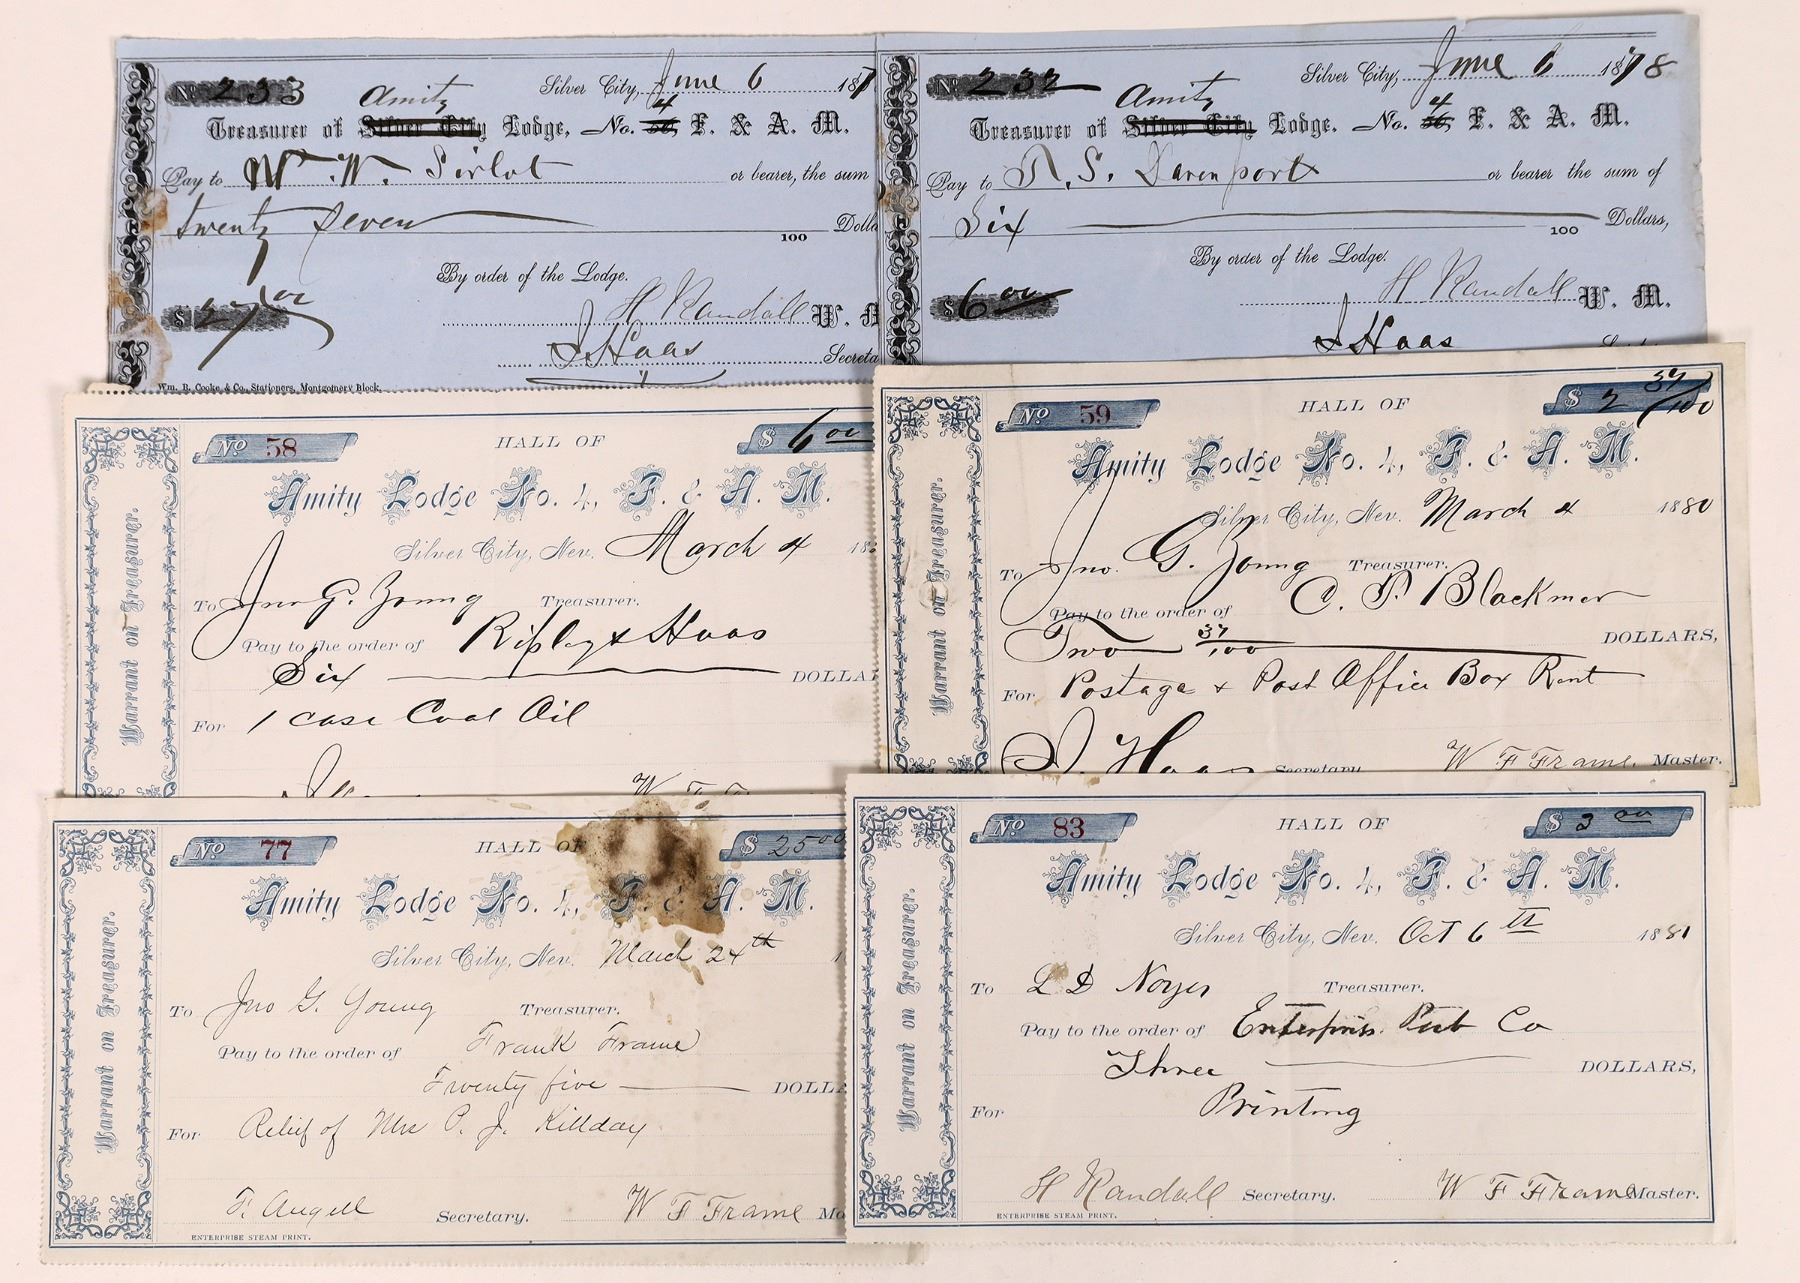 No. 233
Silver City, June 6 187
Amity
4
Treasurer of Silver City Lodge, No. 56, F. & A. M.
Pay to W. W. or bearer, the sum
twenty seven 100 Dolla
By order of the Lodge.
$ 27 00
H Randall W. M
J Haas Secreta
Wm. B. Cooke & Co., Stationers, Montgomery Block.
No. 232
Silver City, June 6 1878
Amity
4
Treasurer of Silver City Lodge, No. 56, F. & A. M.
Pay to S. Davenport or bearer the sum of
Six 100 Dollars,
By order of the Lodge.
$ 6 00
H Randall W. M.
J Haas
No 58 HALL OF $ 6 00
Amity Lodge No. 4, F. & A. M.
Silver City, Nev. March 4 18
To Jno G. Young Treasurer.
Pay to the order of Ripley & Haas
Six DOLLA
For 1 case Coal Oil
Warrant on Treasurer.
No 59 HALL OF $ 2 37/100
Amity Lodge No. 4, F. & A. M.
Silver City, Nev. March 4 1880
To Jno. G. Young Treasurer.
Pay to the order of C. P. Blackmer
Two 37/100 DOLLARS,
For Postage & Post Office Box Rent
J. Haas Secretary W F Frame. Master.
Warrant on Treasurer.
No 77 HALL OF $ 25 00
Amity Lodge No. 4, F. & A. M.
Silver City, Nev. March 24th 1
To Jno G. Young Treasurer.
Pay to the order of Frank Frame
Twenty five DOLLA
For Relief of Mrs P. J. Killday
F. Angell Secretary. W F Frame Ma
ENTERPRISE STEAM PRINT.
Warrant on Treasurer.
No 83 HALL OF $ 3 00
Amity Lodge No. 4, F. & A. M.
Silver City, Nev. Oct 6th 1881
To L D Noyes Treasurer.
Pay to the order of Enterprise Pub Co
Three DOLLARS,
For Printing
H Randall Secretary. W F Frame Master.
ENTERPRISE STEAM PRINT.
Warrant on Treasurer.